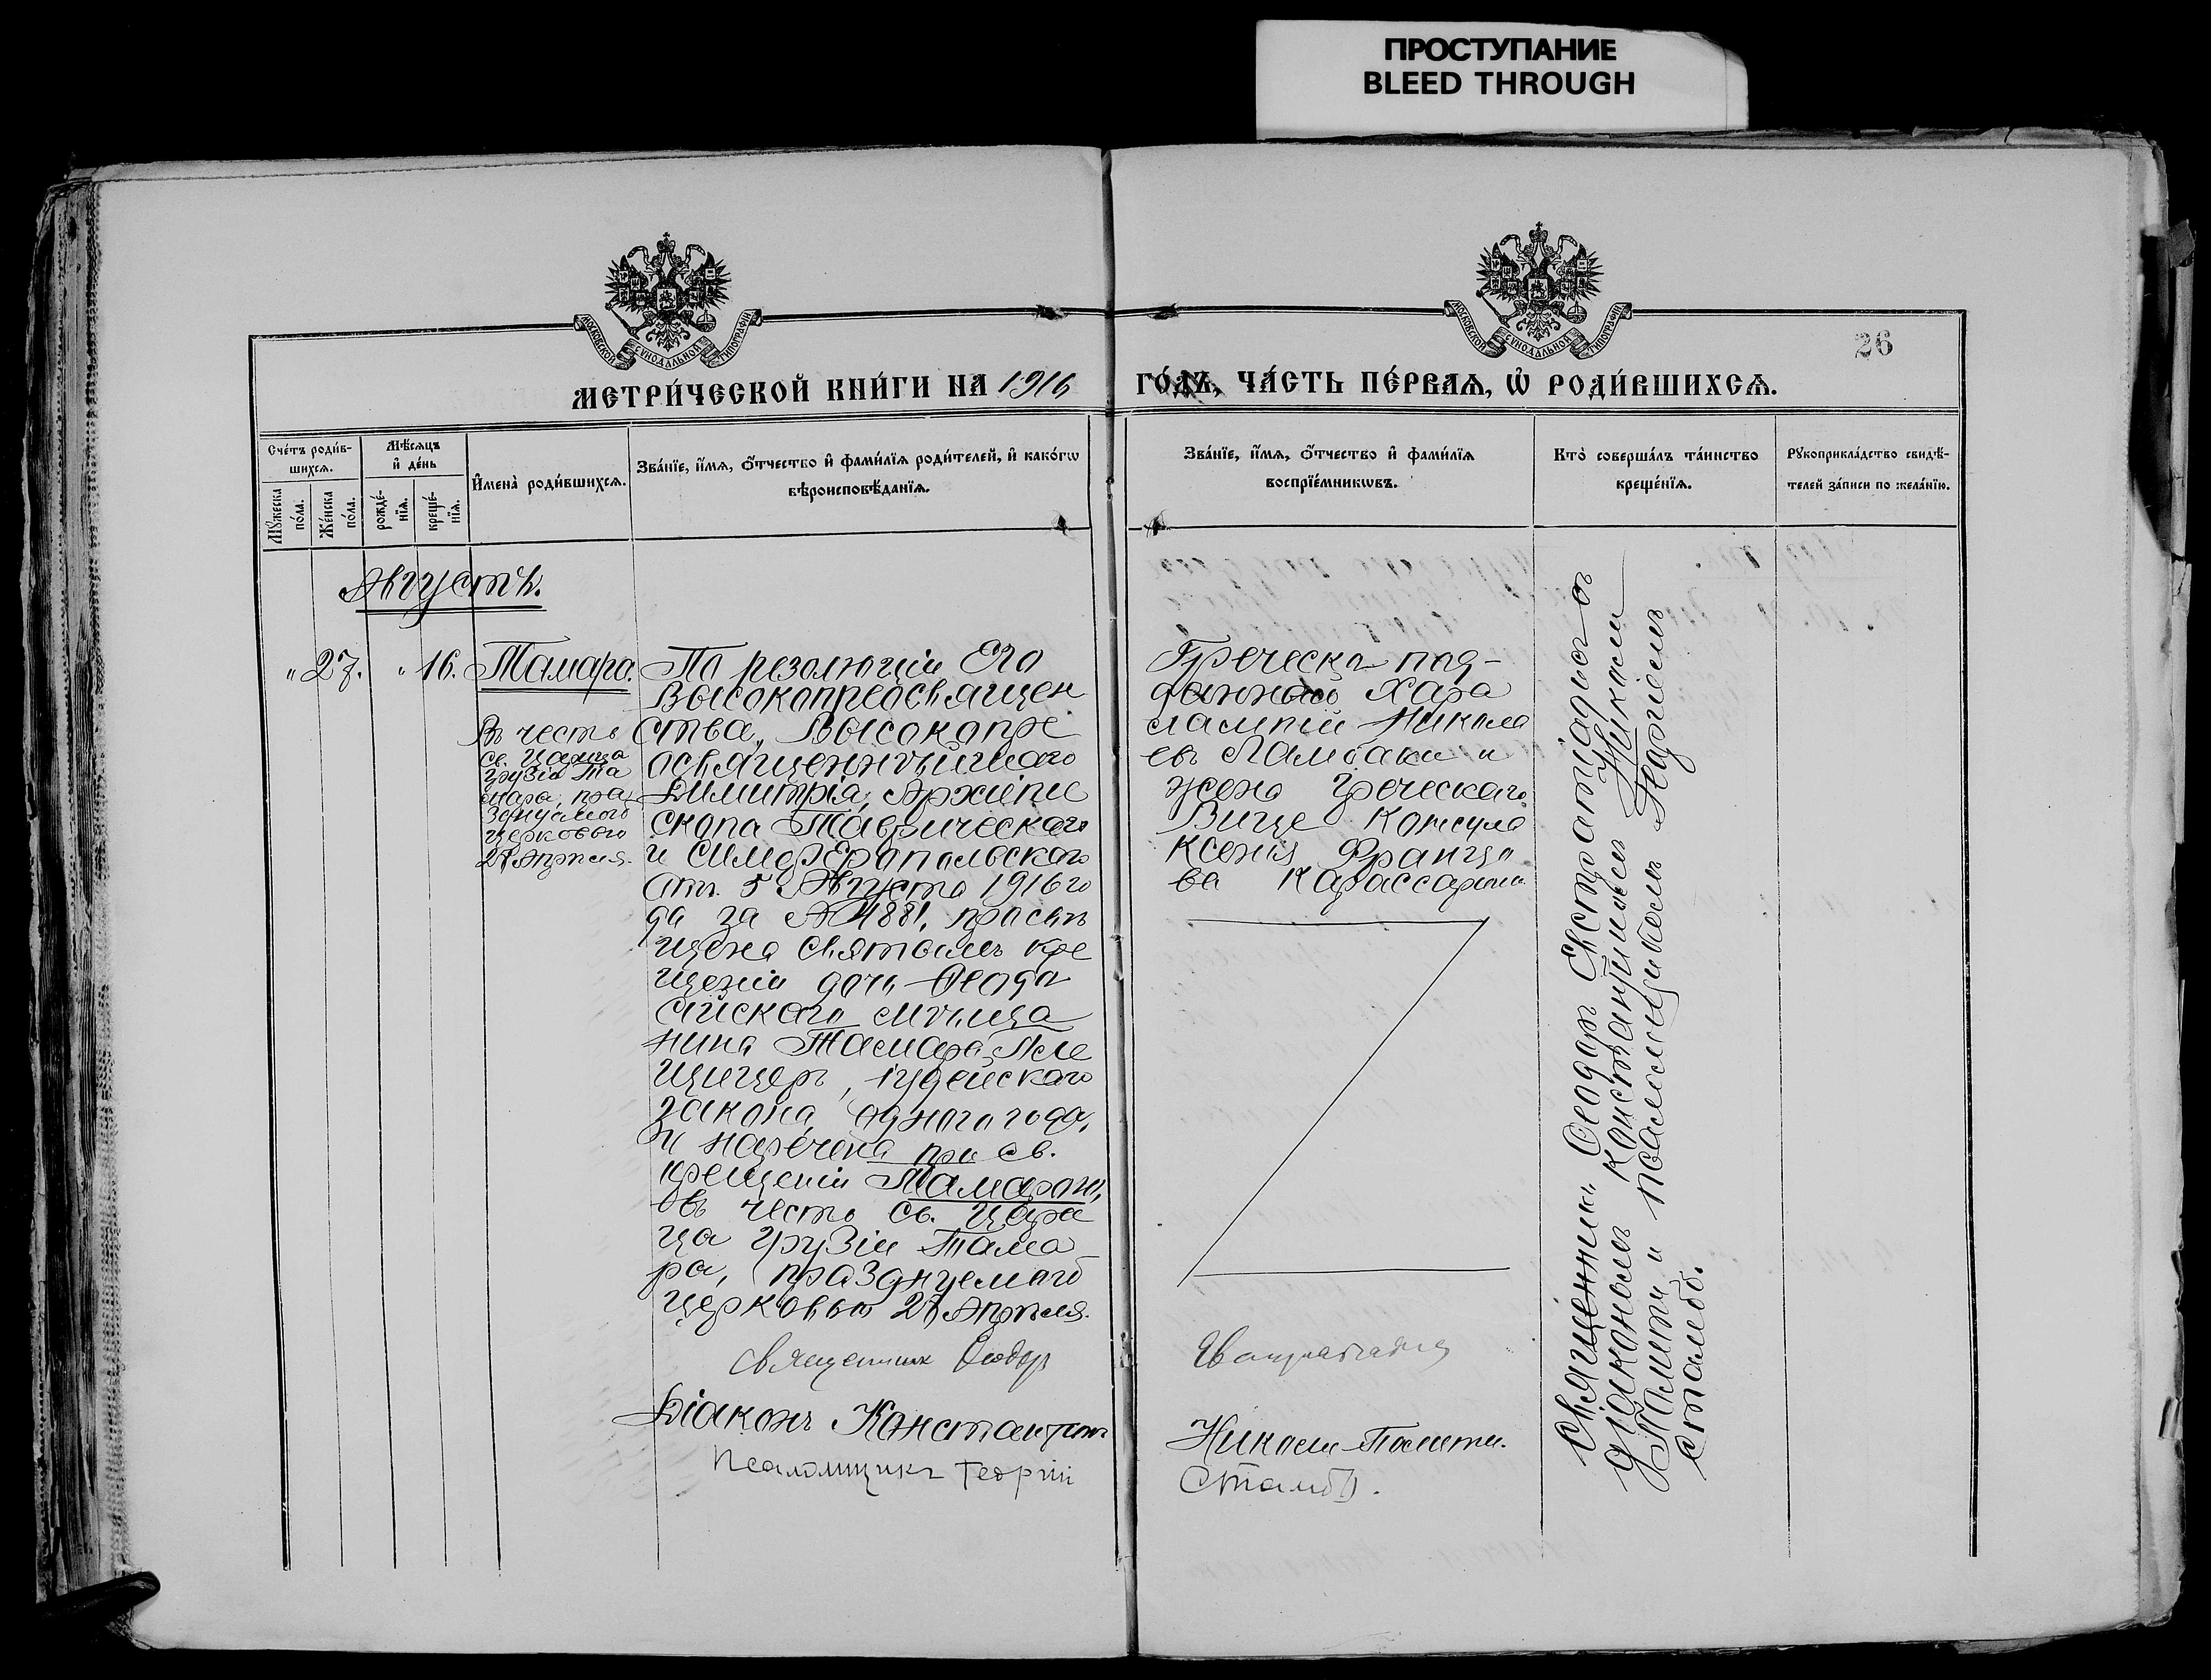 ПРОСТУПАНИЕ
BLEED THROUGH
МОСКОВСКОЙ СУНОДАЛЬНОЙ ТИПОГРАФІИ
МОСКОВСКОЙ СУНОДАЛЬНОЙ ТИПОГРАФІИ
26
МЕТРИ́ЧЕСКОЙ КНИ́ГИ НА 1916 ГО́ДЪ, ЧА́СТЬ ПЕ́РВАѦ, Ѡ҆ РОДИ́ВШИХСѦ.
Сче́тъ роди́в-
шихсѧ.
Мꙋ́жеска
по́ла.
Же́нска
по́ла.
Мѣ́сѧцъ
и҆ де́нь
рожде́-
нїѧ.
креще́-
нїѧ.
И҆мена̀ роди́вшихсѧ.
Зва́нїе, и҆́мѧ, ѻ҆́тчество и҆ фами́лїѧ роди́телей, и҆ како́гѡ
вѣроисповѣ́данїѧ.
Зва́нїе, и҆́мѧ, ѻ҆́тчество и҆ фами́лїѧ
воспрїе́мникѡвъ.
Кто̀ соверша́лъ та́инство
креще́нїѧ.
Рꙋкоприкла́дство свидѣ́-
телей за́писи по жела́нїю.
Августъ.
" 27. " 16. Тамара.
Въ честь
св. Царица
Грузіи Та
мара, пра
зднуемого
церковью
27 Апрѣля.
По резолюціи Его
Высокопреосвящен
ства, Высокопре
освященнѣйшаго
Димитрія, Архіепи
скопа Таврическаго
и Симферопольскаго
отъ 5 Августа 1916 го
да за № 4881, просвѣ
щена святымъ кре
щеніи дочь Ѳеодо
сійскаго мѣща
нина Тамара
іудейскаго
закона, одного года,
и наречена при св.
крещеніи Тамарою,
въ честь св. Цари
ца Грузіи Тама
ра, празднуемаго
церковью 27 Апрѣля.
Священникъ Ѳеодоръ
Діаконъ Константинъ
Псаломщикъ Георгій
Греческа под-
данный Хара
лампій Никола
евъ Ламбаки и
жена Греческаго
Вице Консула
Ксенія Францо
ва
Евстратіадисъ
Николи-Полити.
Стамбо.
Священникъ Ѳеодоръ Евстратіадисъ съ
діакономъ Константиномъ Николи
Полити и псаломщикомъ Георгіемъ
Стамбо.